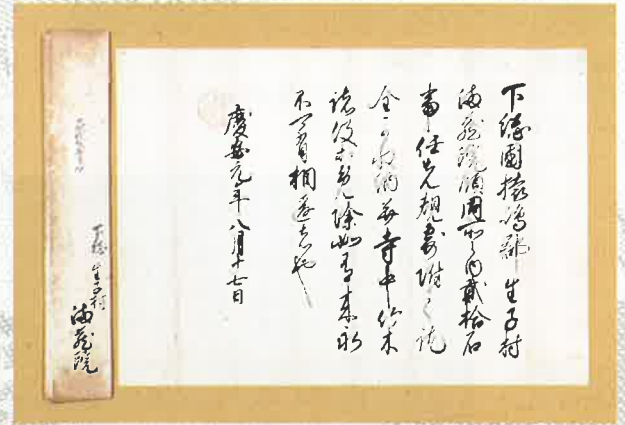 下総國猿嶋郡生子村
満蔵院領同所之内貳拾石
事任先規寄附之訖
全可収納并寺中竹木
諸役等免除如有来永
不可有相違者也
慶安元年八月十七日
下総 生子村
満蔵院